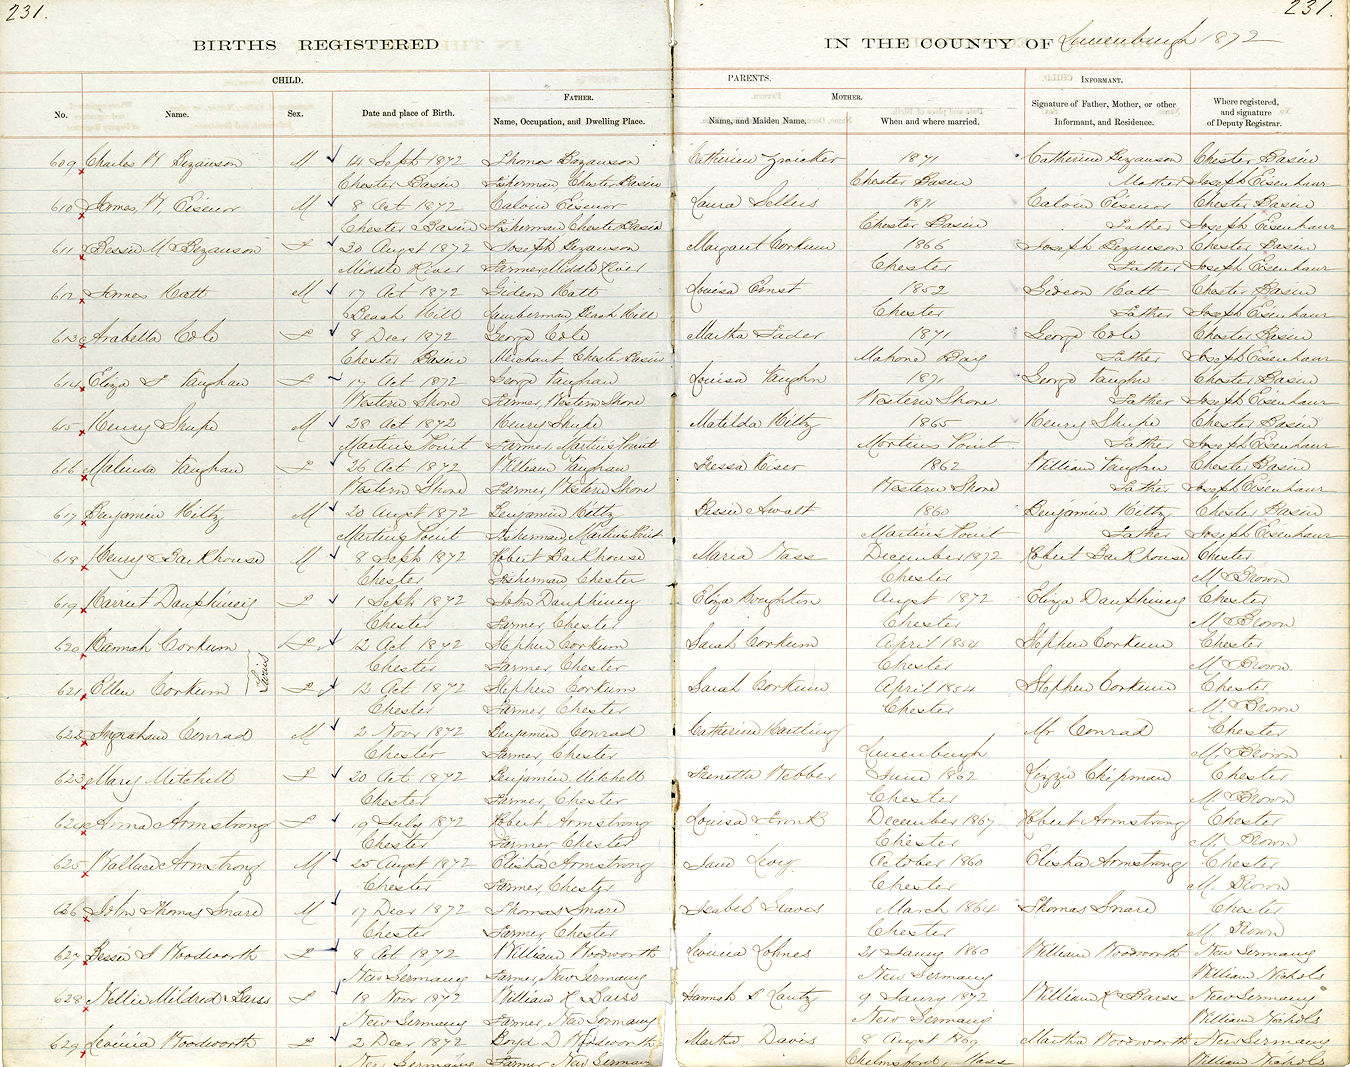 231.
231.
BIRTHS REGISTERED
IN THE COUNTY OF Lunenburgh 1872
CHILD.
PARENTS.
No.
Name.
Sex.
Date and place of Birth.
FATHER.
Name, Occupation, and Dwelling Place.
MOTHER.
Name, and Maiden Name.
When and where married.
INFORMANT.
Signature of Father, Mother, or other Informant, and Residence.
Where registered, and signature of Deputy Registrar.
609 Charles W Bezanson M 14 Sept 1872 Thomas Bezanson Catherine Zwicker 1871 Catherine Bezanson Chester Basin
Chester Basin Fisherman Chester Basin Chester Basin Mother Joseph Eisenhaur
610 James W, Eisenor M 8 Oct 1872 Calvin Eisenor Laura Sellers 1871 Calvin Eisenor Chester Basin
Chester Basin Fisherman Chester Basin Chester Basin Father Joseph Eisenhaur
611 Bessie M Bezanson F 20 Augst 1872 Joseph Bezanson Margaret Corkum 1866 Joseph Bezanson Chester Basin
Middle River Farmer Middle River Chester Father Joseph Eisenhaur
612 James Hatt M 17 Oct 1872 Gideon Hatt Louisa Ernst 1852 Gideon Hatt Chester Basin
Beach Hill Lumberman Beach Hill Chester Father Joseph Eisenhaur
613 Arabella Cole F 8 Decr 1872 George Cole Martha Fader 1871 George Cole Chester Basin
Chester Basin Merchant Chester Basin Mahone Bay Father Joseph Eisenhaur
614 Eliza F Vaughan F 17 Oct 1872 George Vaughan Louisa Vaughn 1871 George Vaughn Chester Basin
Western Shore Farmer, Western Shore Western Shore Father Joseph Eisenhaur
615 Henry Shupe M 28 Oct 1872 Henry Shupe Matilda Hiltz 1865 Henry Shupe Chester Basin
Martins Point Farmer, Martins Point Martins Point Father Joseph Eisenhaur
616 Malinda Vaughan F 26 Oct 1872 William Vaughan Kiser 1862 William Vaughn Chester Basin
Western Shore Farmer, Western Shore Western Shore Father Joseph Eisenhaur
617 Benjamin Hiltz M 20 Augst 1872 Benjamin Hiltz Bessie Awalt 1860 Benjamin Hiltz Chester Basin
Martins Point Fisherman, Martins Point Martins Point Father Joseph Eisenhaur
618 Henry Backhouse M 8 Sept 1872 Robert Backhouse Maria Nass December 1872 Robert Backhouse Chester
Chester Fisherman Chester Chester M. Brown
619 Harriet Dauphiney F 1 Sept 1872 John Dauphiney Eliza Houghton Augst 1872 Eliza Dauphiney Chester
Chester Farmer Chester Chester M Brown
620 Hannah Corkum F 12 Oct 1872 Stephen Corkum Sarah Corkum April 1854 Stephen Corkum Chester
Chester Farmer, Chester Chester M Brown
Twins
621 Ellen Corkum F 12 Oct 1872 Stephen Corkum Sarah Corkum April 1854 Stephen Corkum Chester
Chester Farmer, Chester Chester M. Brown
622 Ingraham Conrad M 2 Novr 1872 Benjamin Conrad Catherine Mr Conrad Chester
Chester Farmer, Chester Lunenburgh M. Brown
623 Mary Mitchell F 20 Oct 1872 Benjamin Mitchell Webber June 1862 Lizzie Chipman Chester
Chester Farmer, Chester Chester M. Brown
624 Anna Armstrong F 19 July 1872 Robert Armstrong Louisa December 1867 Robert Armstrong Chester
Chester Farmer Chester Chester M. Brown
625 Wallace Armstrong M 25 Augst 1872 Elisha Armstrong Jane Levy October 1860 Elisha Armstrong Chester
Chester Farmer, Chester Chester M. Brown
626 John Thomas Snare M 17 Decr 1872 Thomas Snare March 1864 Thomas Snare Chester
Chester Farmer, Chester Chester M. Brown
627 Bessie S Woodworth F 8 Oct 1872 William Woodworth Lavinia Lohnes 21 Janry 1860 William Woodworth New Germany
New Germany Farmer, New Germany New Germany William Nichols
628 Nellie Mildred Barss F 18 Novr 1872 William K Barss Hannah S Lantz 9 Janry 1872 William K Barss New Germany
New Germany Farmer, New Germany New Germany William Nichols
629 Lavinia Woodworth F 2 Decr 1872 Boyd D Woodworth Martha Davis 8 Augst 1869 Martha Woodworth New Germany
New Germany Farmer New Germany Chelmsford, Mass William Nichols